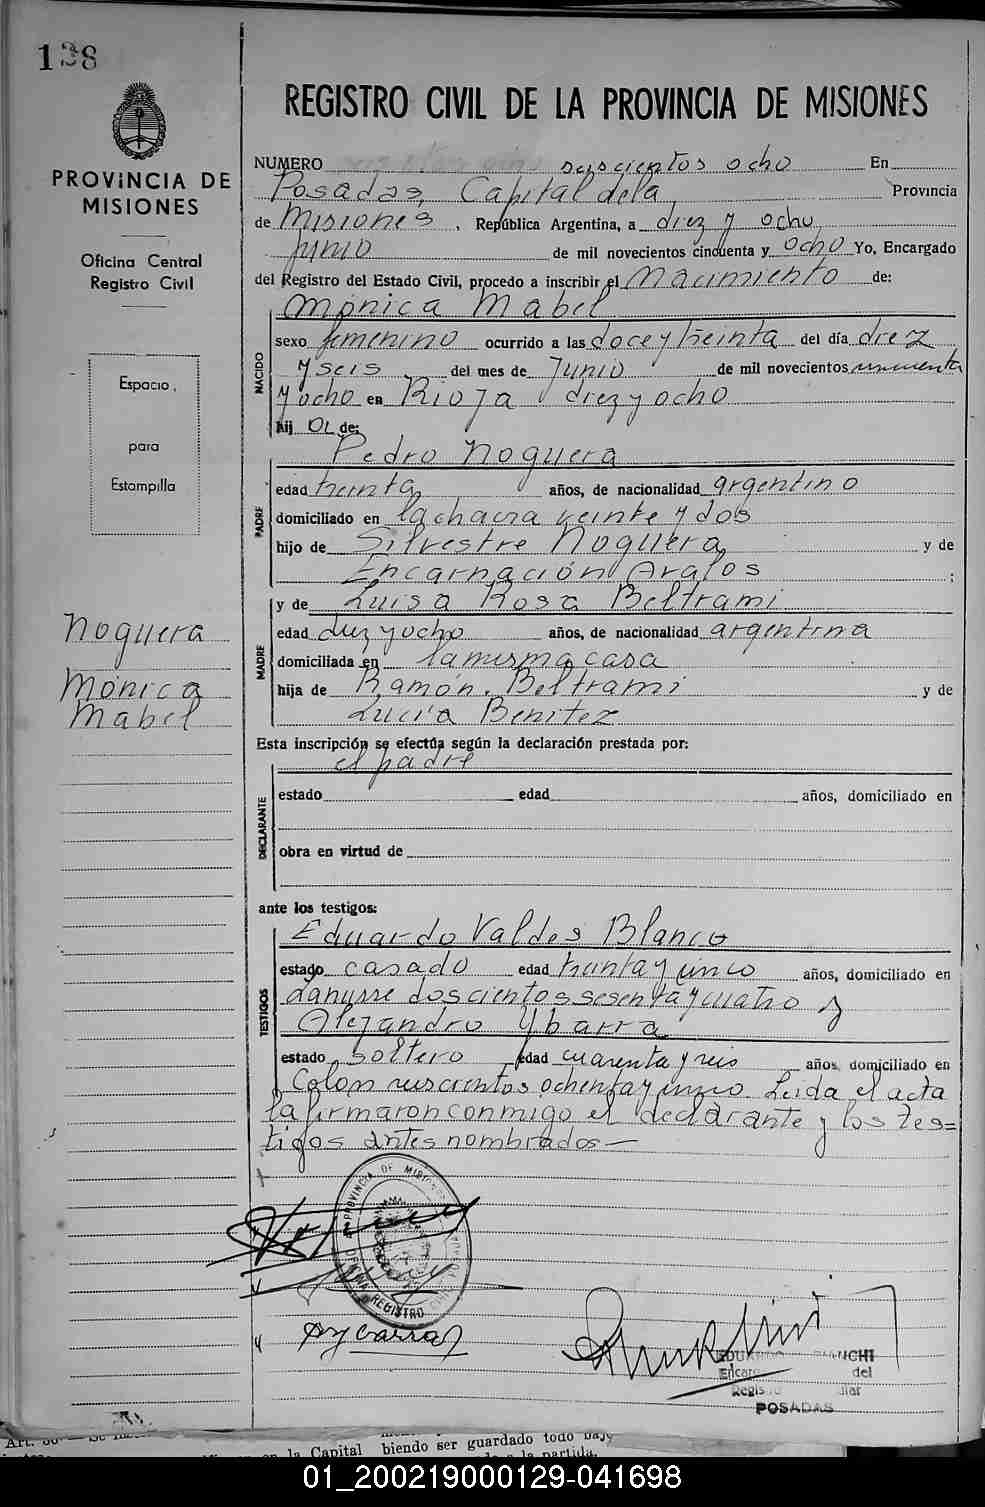 138
PROVINCIA DE
MISIONES
Oficina Central
Registro Civil
Espacio
para
Estampilla
Noguera
Mónica
Mabel
REGISTRO CIVIL DE LA PROVINCIA DE MISIONES
NUMERO seiscientos ocho En
Posadas, Capital de la Provincia
de Misiones, República Argentina, a diez y ocho
junio de mil novecientos cincuenta y ocho Yo, Encargado
del Registro del Estado Civil, procedo a inscribir el Nacimiento de:
Mónica Mabel
NACIDO
sexo femenino ocurrido a las doce y treinta del día diez
y seis del mes de Junio de mil novecientos cincuenta
y ocho en Rioja diez y ocho
hij a de:
Pedro Noguera
PADRE
edad treinta años, de nacionalidad argentino
domiciliado en la chacra veinte y dos
hijo de Silvestre Noguera y de
Encarnación Avalos ;
y de Luisa Rosa Beltrami
MADRE
edad diez y ocho años, de nacionalidad argentina
domiciliada en la misma casa
hija de Ramón Beltrami y de
Lucía Benitez
Esta inscripción se efectúa según la declaración prestada por:
el padre
DECLARANTE
estado edad años, domiciliado en
obra en virtud de
ante los testigos:
Eduardo Valdes Blanco
TESTIGOS
estado casado edad treinta y cinco años, domiciliado en
Lanusse doscientos sesenta y cuatro y
Alejandro Ybarra
estado soltero edad cuarenta y seis años, domiciliado en
Colon seiscientos ochenta y cinco. Leida el acta
la firmaron conmigo el declarante y los tes=
tigos antes nombrados—
PROVINCIA DE MISIONES
REGISTRO
AYbarra
EDUARDO BIANCHI
Encar del
Regis
POSADAS
la Capital
biendo ser guardado todo bajo
la partida.
01_200219000129-041698